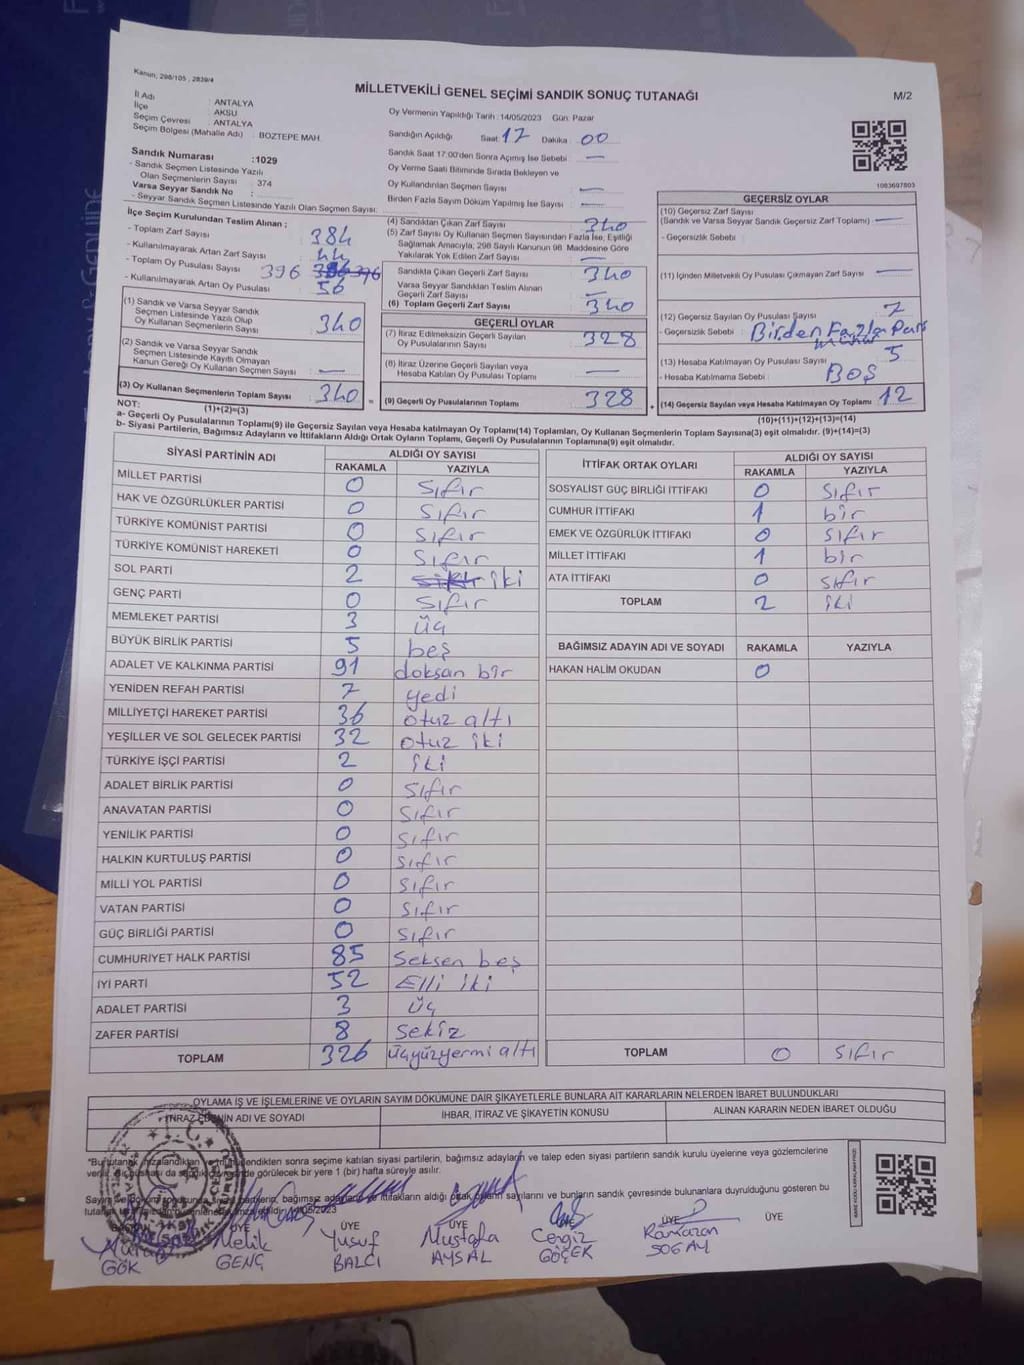 Kanun, 298/105 , 2839/4
MİLLETVEKİLİ GENEL SEÇİMİ SANDIK SONUÇ TUTANAĞI
M/2
İl Adı : ANTALYA
İlçe : AKSU
Seçim Çevresi : ANTALYA
Seçim Bölgesi (Mahalle Adı) : BOZTEPE MAH.
Oy Vermenin Yapıldığı Tarih : 14/05/2023 Gün: Pazar
Sandığın Açıldığı Saat: 17 Dakika : 00
Sandık Saat 17:00'den Sonra Açımış İse Sebebi : —
Oy Verme Saati Bitiminde Sırada Bekleyen ve
Oy Kullandırılan Seçmen Sayısı : —
Birden Fazla Sayım Döküm Yapılmış İse Sayısı : —
1083607803
Sandık Numarası :1029
- Sandık Seçmen Listesinde Yazılı
Olan Seçmenlerin Sayısı : 374
Varsa Seyyar Sandık No :
- Seyyar Sandık Seçmen Listesinde Yazılı Olan Seçmen Sayısı:
İlçe Seçim Kurulundan Teslim Alınan ;
- Toplam Zarf Sayısı : 384
- Kullanılmayarak Artan Zarf Sayısı : 44
- Toplam Oy Pusulası Sayısı 396 396
- Kullanılmayarak Artan Oy Pusulası : 56
(1) Sandık ve Varsa Seyyar Sandık
Seçmen Listesinde Yazılı Olup
Oy Kullanan Seçmenlerin Sayısı : 340
(2) Sandık ve Varsa Seyyar Sandık
Seçmen Listesinde Kayıtlı Olmayan
Kanun Gereği Oy Kullanan Seçmen Sayısı : —
(3) Oy Kullanan Seçmenlerin Toplam Sayısı : 340
(1)+(2)=(3)
(4) Sandıktan Çıkan Zarf Sayısı : 340
(5) Zarf Sayısı Oy Kullanan Seçmen Sayısından Fazla İse, Eşitliği
Sağlamak Amacıyla, 298 Sayılı Kanunun 98. Maddesine Göre
Yakılarak Yok Edilen Zarf Sayısı : —
Sandıkta Çıkan Geçerli Zarf Sayısı : 340
Varsa Seyyar Sandıktan Teslim Alınan
Geçerli Zarf Sayısı : —
(6) Toplam Geçerli Zarf Sayısı : 340
GEÇERLİ OYLAR
(7) İtiraz Edilmeksizin Geçerli Sayılan
Oy Pusulalarının Sayısı : 328
(8) İtiraz Üzerine Geçerli Sayılan veya
Hesaba Katılan Oy Pusulası Toplamı : —
= (9) Geçerli Oy Pusulalarının Toplamı : 328
GEÇERSİZ OYLAR
(10) Geçersiz Zarf Sayısı
(Sandık ve Varsa Seyyar Sandık Geçersiz Zarf Toplamı) : —
- Geçersizlik Sebebi :
(11) İçinden Milletvekili Oy Pusulası Çıkmayan Zarf Sayısı : —
(12) Geçersiz Sayılan Oy Pusulası Sayısı : 7
- Geçersizlik Sebebi : Birden Fazla Part
mühür
(13) Hesaba Katılmayan Oy Pusulası Sayısı : 5
- Hesaba Katılmama Sebebi : BOŞ
+ (14) Geçersiz Sayılan veya Hesaba Katılmayan Oy Toplamı : 12
(10)+(11)+(12)+(13)=(14)
NOT:
a- Geçerli Oy Pusulalarının Toplamı(9) ile Geçersiz Sayılan veya Hesaba katılmayan Oy Toplamı(14) Toplamları, Oy Kullanan Seçmenlerin Toplam Sayısına(3) eşit olmalıdır. (9)+(14)=(3)
b- Siyasi Partilerin, Bağımsız Adayların ve İttifakların Aldığı Ortak Oyların Toplamı, Geçerli Oy Pusulalarının Toplamına(9) eşit olmalıdır.
SİYASİ PARTİNİN ADI ALDIĞI OY SAYISI
RAKAMLA YAZIYLA
MİLLET PARTİSİ 0 sıfır
HAK VE ÖZGÜRLÜKLER PARTİSİ 0 sıfır
TÜRKİYE KOMÜNİST PARTİSİ 0 sıfır
TÜRKİYE KOMÜNİST HAREKETİ 0 sıfır
SOL PARTİ 2 sıfır iki
GENÇ PARTİ 0 sıfır
MEMLEKET PARTİSİ 3 üç
BÜYÜK BİRLİK PARTİSİ 5 beş
ADALET VE KALKINMA PARTİSİ 91 doksan bir
YENİDEN REFAH PARTİSİ 7 yedi
MİLLİYETÇİ HAREKET PARTİSİ 36 otuz altı
YEŞİLLER VE SOL GELECEK PARTİSİ 32 otuz iki
TÜRKİYE İŞÇİ PARTİSİ 2 iki
ADALET BİRLİK PARTİSİ 0 sıfır
ANAVATAN PARTİSİ 0 sıfır
YENİLİK PARTİSİ 0 sıfır
HALKIN KURTULUŞ PARTİSİ 0 sıfır
MİLLİ YOL PARTİSİ 0 sıfır
VATAN PARTİSİ 0 sıfır
GÜÇ BİRLİĞİ PARTİSİ 0 sıfır
CUMHURİYET HALK PARTİSİ 85 seksen beş
İYİ PARTİ 52 Elli iki
ADALET PARTİSİ 3 üç
ZAFER PARTİSİ 8 sekiz
TOPLAM 326 üçyüzyermi altı
İTTİFAK ORTAK OYLARI ALDIĞI OY SAYISI
RAKAMLA YAZIYLA
SOSYALİST GÜÇ BİRLİĞİ İTTİFAKI 0 sıfır
CUMHUR İTTİFAKI 1 bir
EMEK VE ÖZGÜRLÜK İTTİFAKI 0 sıfır
MİLLET İTTİFAKI 1 bir
ATA İTTİFAKI 0 sıfır
TOPLAM 2 iki
BAĞIMSIZ ADAYIN ADI VE SOYADI RAKAMLA YAZIYLA
HAKAN HALİM OKUDAN 0
TOPLAM 0 sıfır
OYLAMA İŞ VE İŞLEMLERİNE VE OYLARIN SAYIM DÖKÜMÜNE DAİR ŞİKAYETLERLE BUNLARA AİT KARARLARIN NELERDEN İBARET BULUNDUKLARI
İTİRAZ EDENİN ADI VE SOYADI İHBAR, İTİRAZ VE ŞİKAYETİN KONUSU ALINAN KARARIN NEDEN İBARET OLDUĞU
*Bu tutanak imzalandıktan ve mühürlendikten sonra seçime katılan siyasi partilerin, bağımsız adayların ve talep eden siyasi partilerin sandık kurulu üyelerine veya gözlemcilerine
verilir. görülecek bir yere 1 (bir) hafta süreyle asılır.
Sayım ve döküm sonucunda siyasi partilerin, bağımsız adayların ve ittifakların aldığı ortak oyların sayılarını ve bunların sandık çevresinde bulunanlara duyrulduğunu gösteren bu
tutanak 14/05/2023
ÜYE ÜYE ÜYE ÜYE ÜYE ÜYE
Murat Melik Yusuf Mustafa Cengiz Ramazan
GÖK GENÇ BALCI AYSAL GÖÇEK SOGAY